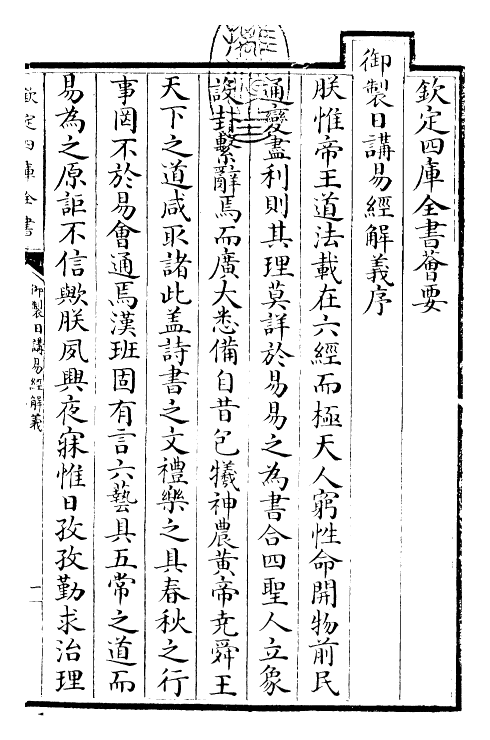 欽定四庫全書薈要
御製日講易經解義序
朕惟帝王道法載在六經而極天人窮性命開物前民
通變盡利則其理莫詳於易易之為書合四聖人立象
設卦繫辭焉而廣大悉備自昔包犧神農黃帝堯舜王
天下之道咸取諸此蓋詩書之文禮樂之具春秋之行
事罔不於易會通焉漢班固有言六藝具五常之道而
易為之原詎不信歟朕夙興夜寐惟日孜孜勤求治理
欽定四庫全書
御製日講易經解義
一